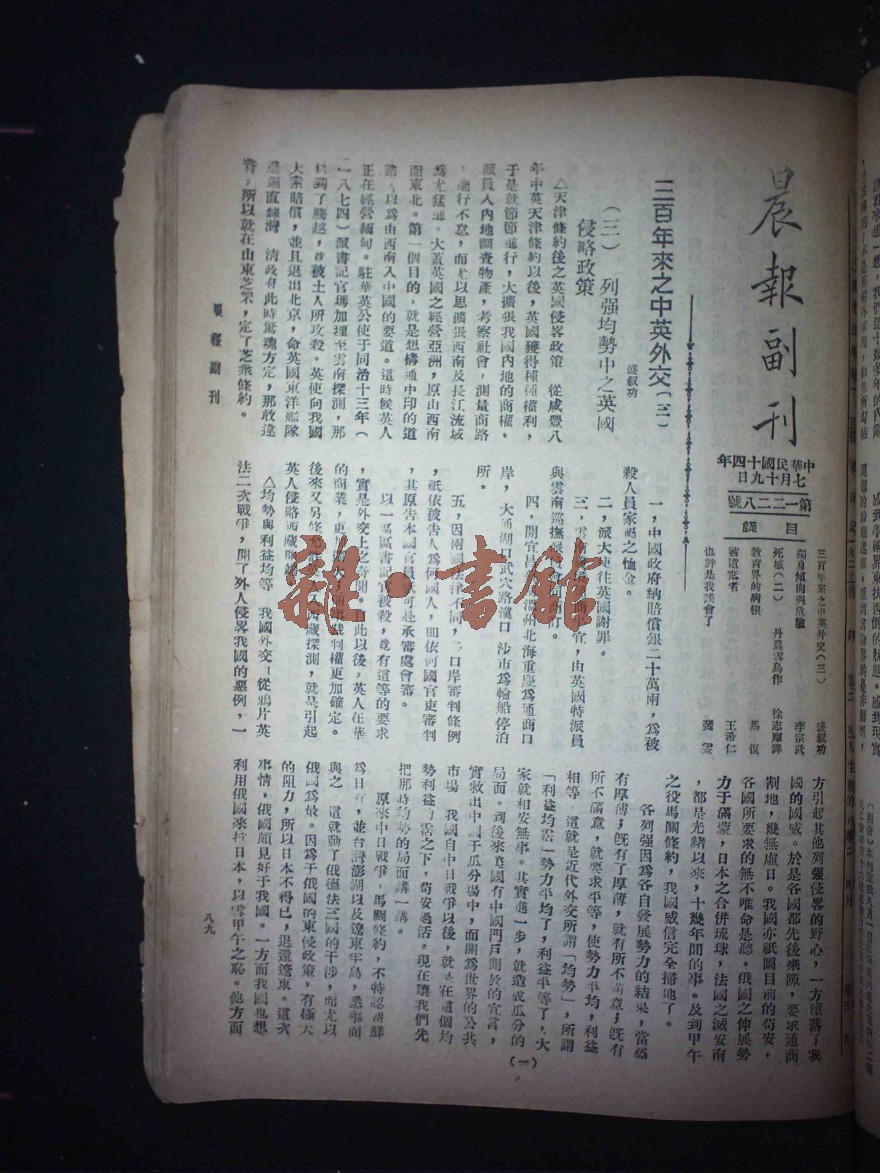 晨報副刊
中華民國十四年
七月十九日
第一二二八號
目錄
三百年來之中英外交(三) 盛敍功
獨身傾向與危險 李宗武
死城(二) 丹農雪烏作 徐志摩譯
教育界的病根 馬復
被遺棄者 王希仁
也許是我誤會了 龔雯
三百年來之中英外交(三)
盛敍功
(三) 列强均勢中之英國
侵略政策
△天津條約後之英國侵畧政策 從咸豐八
年中英天津條約以後,英國獲得種種權利,
于是就節節進行,大擴張我國內地的商權。
派員入內地調查物產,考察社會,測量商路
,進行不怠,而尤以思擴張西南及長江流域
爲尤猛進。大蓋英國之經營亞洲,原由西南
而東北。第一個目的,就是想構通中印的道
路,以爲由西南入中國的要道。這時候英人
正在經營緬甸。駐華英公使于同治十三年(
一八七四)派書記官瑪加理至雲南探測,那
到了騰越,被土人所攻殺。英使向我國
大索賠償,並且退出北京,命英國東洋艦隊
進逼直隸灣 清政府此時驚魂方定,那敢違
背,所以就在山東芝罘,定了芝罘條約。
一,中國政府納賠償銀二十萬兩,爲被
殺人員家屬之恤金。
二,派大使往英國謝罪。
三,雲南 商事宜,由英國特派員
與雲南巡撫派員 商訂。
四,開宜昌 溫州北海重慶爲通商口
岸,大通湖口武穴路溪口 沙市爲輪船停泊
所。
五,因兩國法律不同,口岸審判條例
,祇依被告人爲何國人,即依何國官吏審判
,其原告本國官員 可赴承審處會審。
以一區區書記官被殺,竟有這等的要求
,實是外交上之奇聞。自此以後,英人在華
的商業,更 領事裁判權更加確定。
後來又另條允許英人入西藏探測,就是引起
英人侵略西藏
△均勢與利益均等 我國外交,從鴉片英
法二次戰爭,開了外人侵畧我國的惡例,一
方引起其他列强侵畧的野心,一方墮落了我
國的國威。於是各國都先後來願,要求通商
割地,幾無虛日。我國亦祇圖目前的苟安,
各國所要求的無不唯命是聽。俄國之伸展勢
力于滿蒙,日本之合併琉球,法國之滅安南
,都是光緒以來,十幾年間的事。及到甲午
之役馬關條約,我國威信完全掃地了。
各列强因爲各自發展勢力的結果,當然
有厚薄;旣有了厚薄,就有所不滿意;旣有
所不滿意,就要求平等,使勢力平均,利益
相等 這就是近代外交所謂「均勢」,所謂
「利益均霑」勢力平均了,利益平等了,大
家就相安無事。其實進一步,就造成瓜分的
局面。到後來美國有中國門戶開放的宣言,
實救出中國于瓜分場中,而開爲世界的公共
市場 我國自中日戰爭以後,就是在這個均
勢利益均霑之下,苟安過活。現在讓我們先
把那時均勢的局面講一講。
原來中日戰爭,馬關條約,不特認朝鮮
爲日有,並台灣澎湖以及遼東半島,悉舉而
與之 這就動了俄德法三國的干涉,而尤以
俄國爲最。因爲于俄國的東侵政策,有極大
的阻力,所以日本不得已,退還遼東。這次
事情,俄國頗見好于我國。一方面我國也想
利用俄國來拒日本,以雪甲午之恥。他方面
(一)
晨報副刊
八九
雜·書館